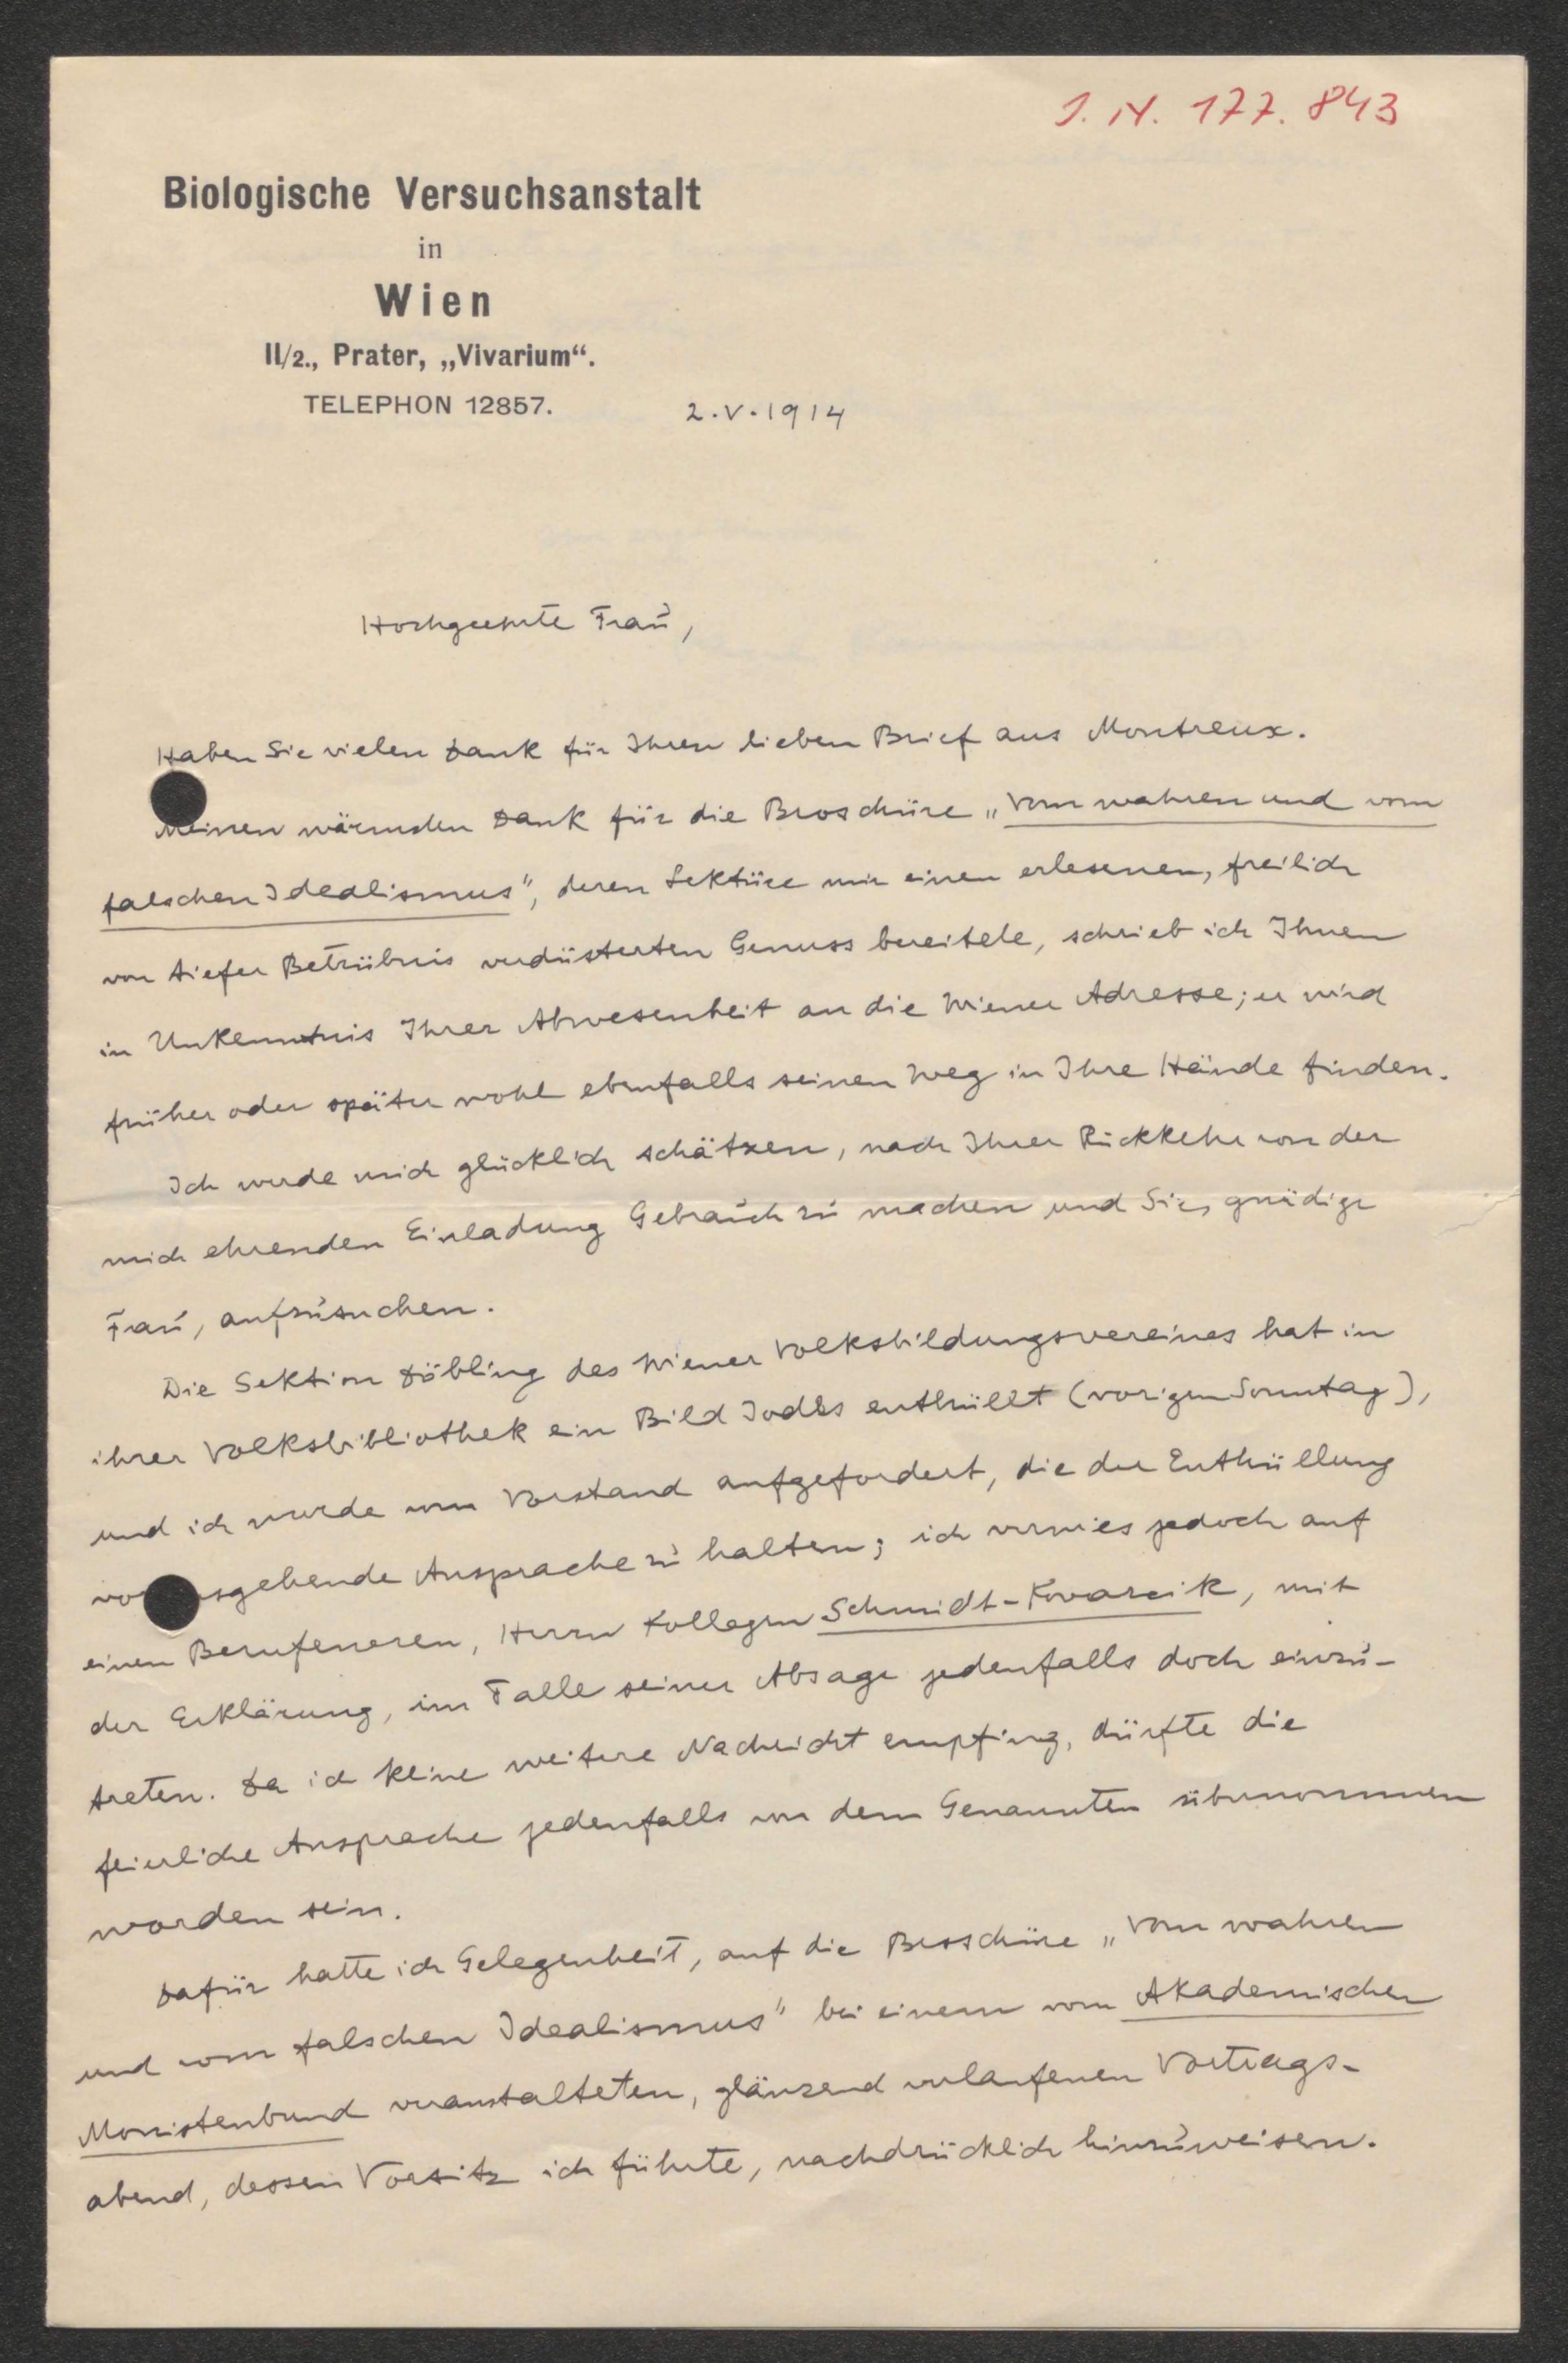 J. N. 177.843
Biologische Versuchsanstalt
in
Wien
II/2., Prater, „Vivarium“.
TELEPHON 12857.
2.V.1914
Hochgeehrte Frau,
Haben Sie vielen Dank für Ihren lieben Brief aus Montreux.
Meinen wärmsten Dank für die Broschüre „Vom wahren und vom
falschen Idealismus“, deren Lektüre mir einen erlesenen, freilich
von tiefer Betrübnis verdüsterten Genuss bereitete, schrieb ich Ihnen
in Unkenntnis Ihrer Abwesenheit an die Wiener Adresse; er wird
früher oder später wohl ebenfalls seinen Weg in Ihre Hände finden.
Ich werde mich glücklich schätzen, nach Ihrer Rückkehr von der
mich ehrenden Einladung Gebrauch zu machen und Sie, gnädige
Frau, aufzusuchen.
Die Sektion Döbling des Wiener Volksbildungsvereines hat in
ihrer Volksbibliothek ein Bild Jodls enthüllt (vorigen Sonntag),
und ich wurde vom Vorstand aufgefordert, die der Enthüllung
vorausgehende Ansprache zu halten; ich verwies jedoch auf
einen Berufeneren, Herrn Kollegen Schmidt-Kovarcik, mit
der Erklärung, im Falle seiner Absage jedenfalls doch einzu-
treten. Da ich keine weitere Nachricht empfing, dürfte die
feierliche Ansprache jedenfalls von dem Genannten übernommen
worden sein.
Dafür hatte ich Gelegenheit, auf die Broschüre „Vom wahren
und vom falschen Idealismus“ bei einem vom Akademischen
Monistenbund veranstalteten, glänzend verlaufenen Vortrags-
abend, dessen Vorsitz ich führte, nachdrücklich hinzuweisen.